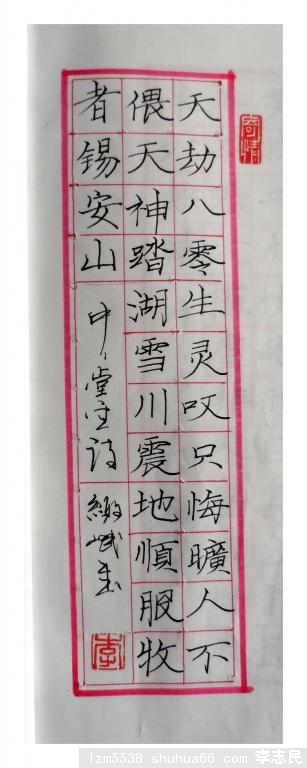 寄情
天劫八零生灵叹只悔曠人不
偎天神踏湖雪川震地順服牧
者锡安山
中堂主诗
李
lzm5538.shuhua66.com 李志民